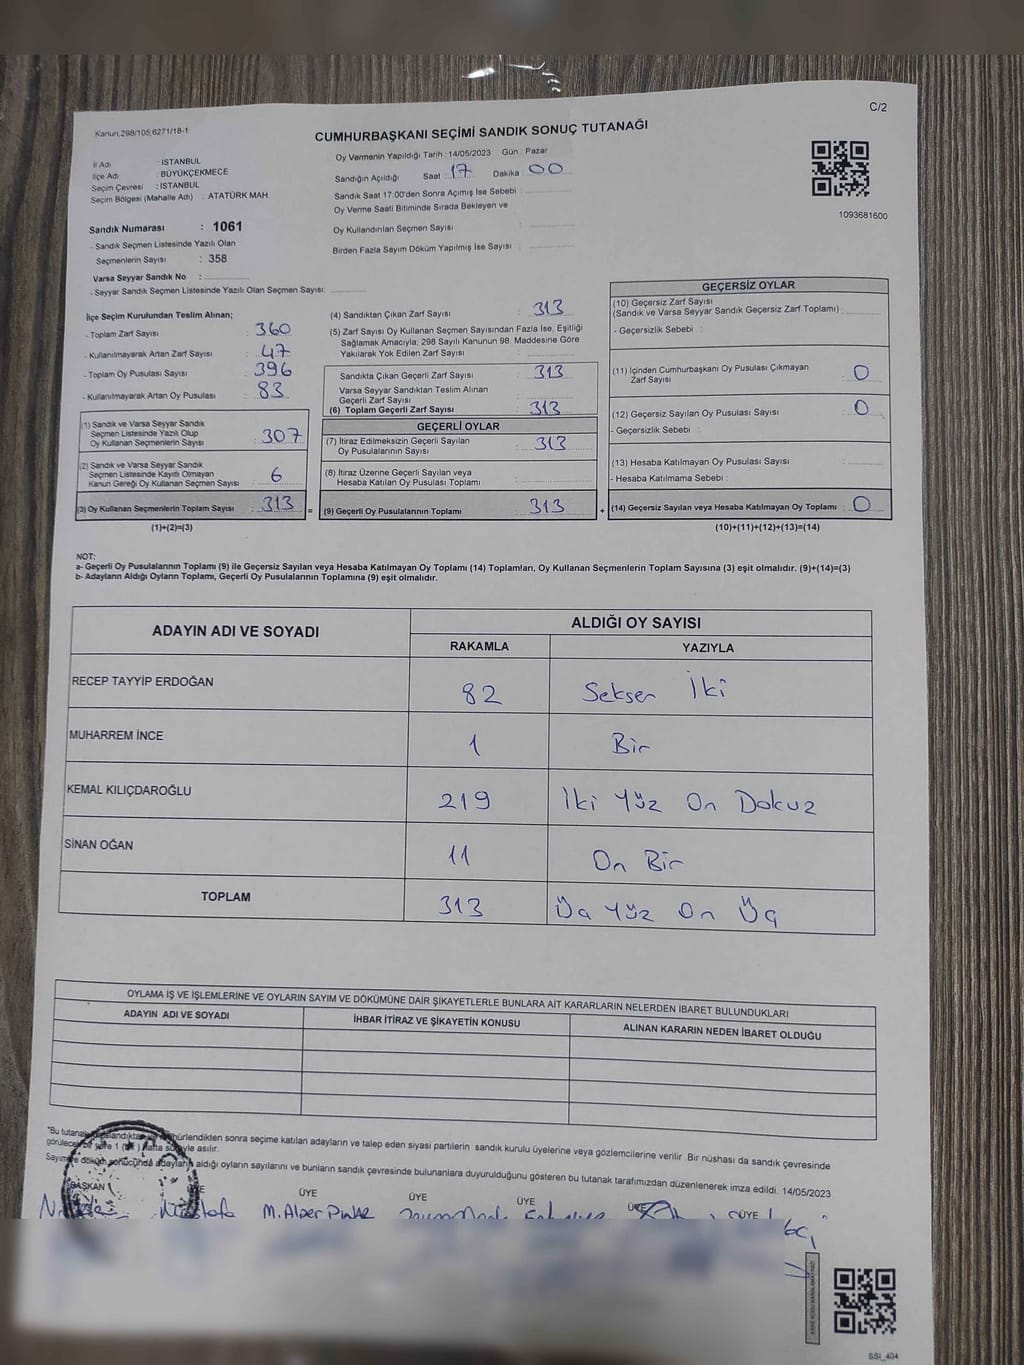 C/2
Kanun,298/105,6271/18-1
CUMHURBAŞKANI SEÇİMİ SANDIK SONUÇ TUTANAĞI
İl Adı : İSTANBUL
İlçe Adı : BÜYÜKÇEKMECE
Seçim Çevresi : İSTANBUL
Seçim Bölgesi (Mahalle Adı) : ATATÜRK MAH.
Oy Vermenin Yapıldığı Tarih :14/05/2023 Gün : Pazar
Sandığın Açıldığı Saat : 17 Dakika : 00
Sandık Saat 17.00'den Sonra Açımış İse Sebebi :
Oy Verme Saati Bitiminde Sırada Bekleyen ve
Oy Kullandırılan Seçmen Sayısı :
Birden Fazla Sayım Döküm Yapılmış İse Sayısı :
1093681600
Sandık Numarası : 1061
- Sandık Seçmen Listesinde Yazılı Olan
Seçmenlerin Sayısı : 358
Varsa Seyyar Sandık No :
- Seyyar Sandık Seçmen Listesinde Yazılı Olan Seçmen Sayısı:
İlçe Seçim Kurulundan Teslim Alınan;
- Toplam Zarf Sayısı : 360
- Kullanılmayarak Artan Zarf Sayısı : 47
- Toplam Oy Pusulası Sayısı : 396
- Kullanılmayarak Artan Oy Pusulası : 83
(1) Sandık ve Varsa Seyyar Sandık
Seçmen Listesinde Yazılı Olup
Oy Kullanan Seçmenlerin Sayısı : 307
(2) Sandık ve Varsa Seyyar Sandık
Seçmen Listesinde Kayıtlı Olmayan
Kanun Gereği Oy Kullanan Seçmen Sayısı : 6
(3) Oy Kullanan Seçmenlerin Toplam Sayısı : 313
(1)+(2)=(3)
(4) Sandıktan Çıkan Zarf Sayısı : 313
(5) Zarf Sayısı Oy Kullanan Seçmen Sayısından Fazla İse, Eşitliği
Sağlamak Amacıyla; 298 Sayılı Kanunun 98. Maddesine Göre
Yakılarak Yok Edilen Zarf Sayısı :
Sandıkta Çıkan Geçerli Zarf Sayısı : 313
Varsa Seyyar Sandıktan Teslim Alınan
Geçerli Zarf Sayısı :
(6) Toplam Geçerli Zarf Sayısı : 313
GEÇERLİ OYLAR
(7) İtiraz Edilmeksizin Geçerli Sayılan
Oy Pusulalarının Sayısı : 313
(8) İtiraz Üzerine Geçerli Sayılan veya
Hesaba Katılan Oy Pusulası Toplamı :
= (9) Geçerli Oy Pusulalarının Toplamı : 313
GEÇERSİZ OYLAR
(10) Geçersiz Zarf Sayısı
(Sandık ve Varsa Seyyar Sandık Geçersiz Zarf Toplamı) :
- Geçersizlik Sebebi :
(11) İçinden Cumhurbaşkanı Oy Pusulası Çıkmayan
Zarf Sayısı : 0
(12) Geçersiz Sayılan Oy Pusulası Sayısı : 0
- Geçersizlik Sebebi :
(13) Hesaba Katılmayan Oy Pusulası Sayısı :
- Hesaba Katılmama Sebebi :
+ (14) Geçersiz Sayılan veya Hesaba Katılmayan Oy Toplamı : 0
(10)+(11)+(12)+(13)=(14)
NOT:
a- Geçerli Oy Pusulalarının Toplamı (9) ile Geçersiz Sayılan veya Hesaba Katılmayan Oy Toplamı (14) Toplamları, Oy Kullanan Seçmenlerin Toplam Sayısına (3) eşit olmalıdır. (9)+(14)=(3)
b- Adayların Aldığı Oyların Toplamı, Geçerli Oy Pusulalarının Toplamına (9) eşit olmalıdır.
ADAYIN ADI VE SOYADI
ALDIĞI OY SAYISI
RAKAMLA YAZIYLA
RECEP TAYYİP ERDOĞAN 82 Seksen İki
MUHARREM İNCE 1 Bir
KEMAL KILIÇDAROĞLU 219 İki Yüz On Dokuz
SİNAN OĞAN 11 On Bir
TOPLAM 313 Üç Yüz On Üç
OYLAMA İŞ VE İŞLEMLERİNE VE OYLARIN SAYIM VE DÖKÜMÜNE DAİR ŞİKAYETLERLE BUNLARA AİT KARARLARIN NELERDEN İBARET BULUNDUKLARI
ADAYIN ADI VE SOYADI İHBAR İTİRAZ VE ŞİKAYETİN KONUSU ALINAN KARARIN NEDEN İBARET OLDUĞU
"Bu tutanak sonra seçime katılan adayların ve talep eden siyasi partilerin sandık kurulu üyelerine veya gözlemcilerine verilir. Bir nüshası da sandık çevresinde
görülecek bir yere 1 hafta asılır.
Sayım ve döküm sonucunda adayların aldığı oyların sayılarını ve bunların sandık çevresinde bulunanlara duyurulduğunu gösteren bu tutanak tarafımızdan düzenlenerek imza edildi. 14/05/2023
BAŞKAN ÜYE ÜYE ÜYE ÜYE ÜYE ÜYE
Mustafa M. Alper
SSI_404